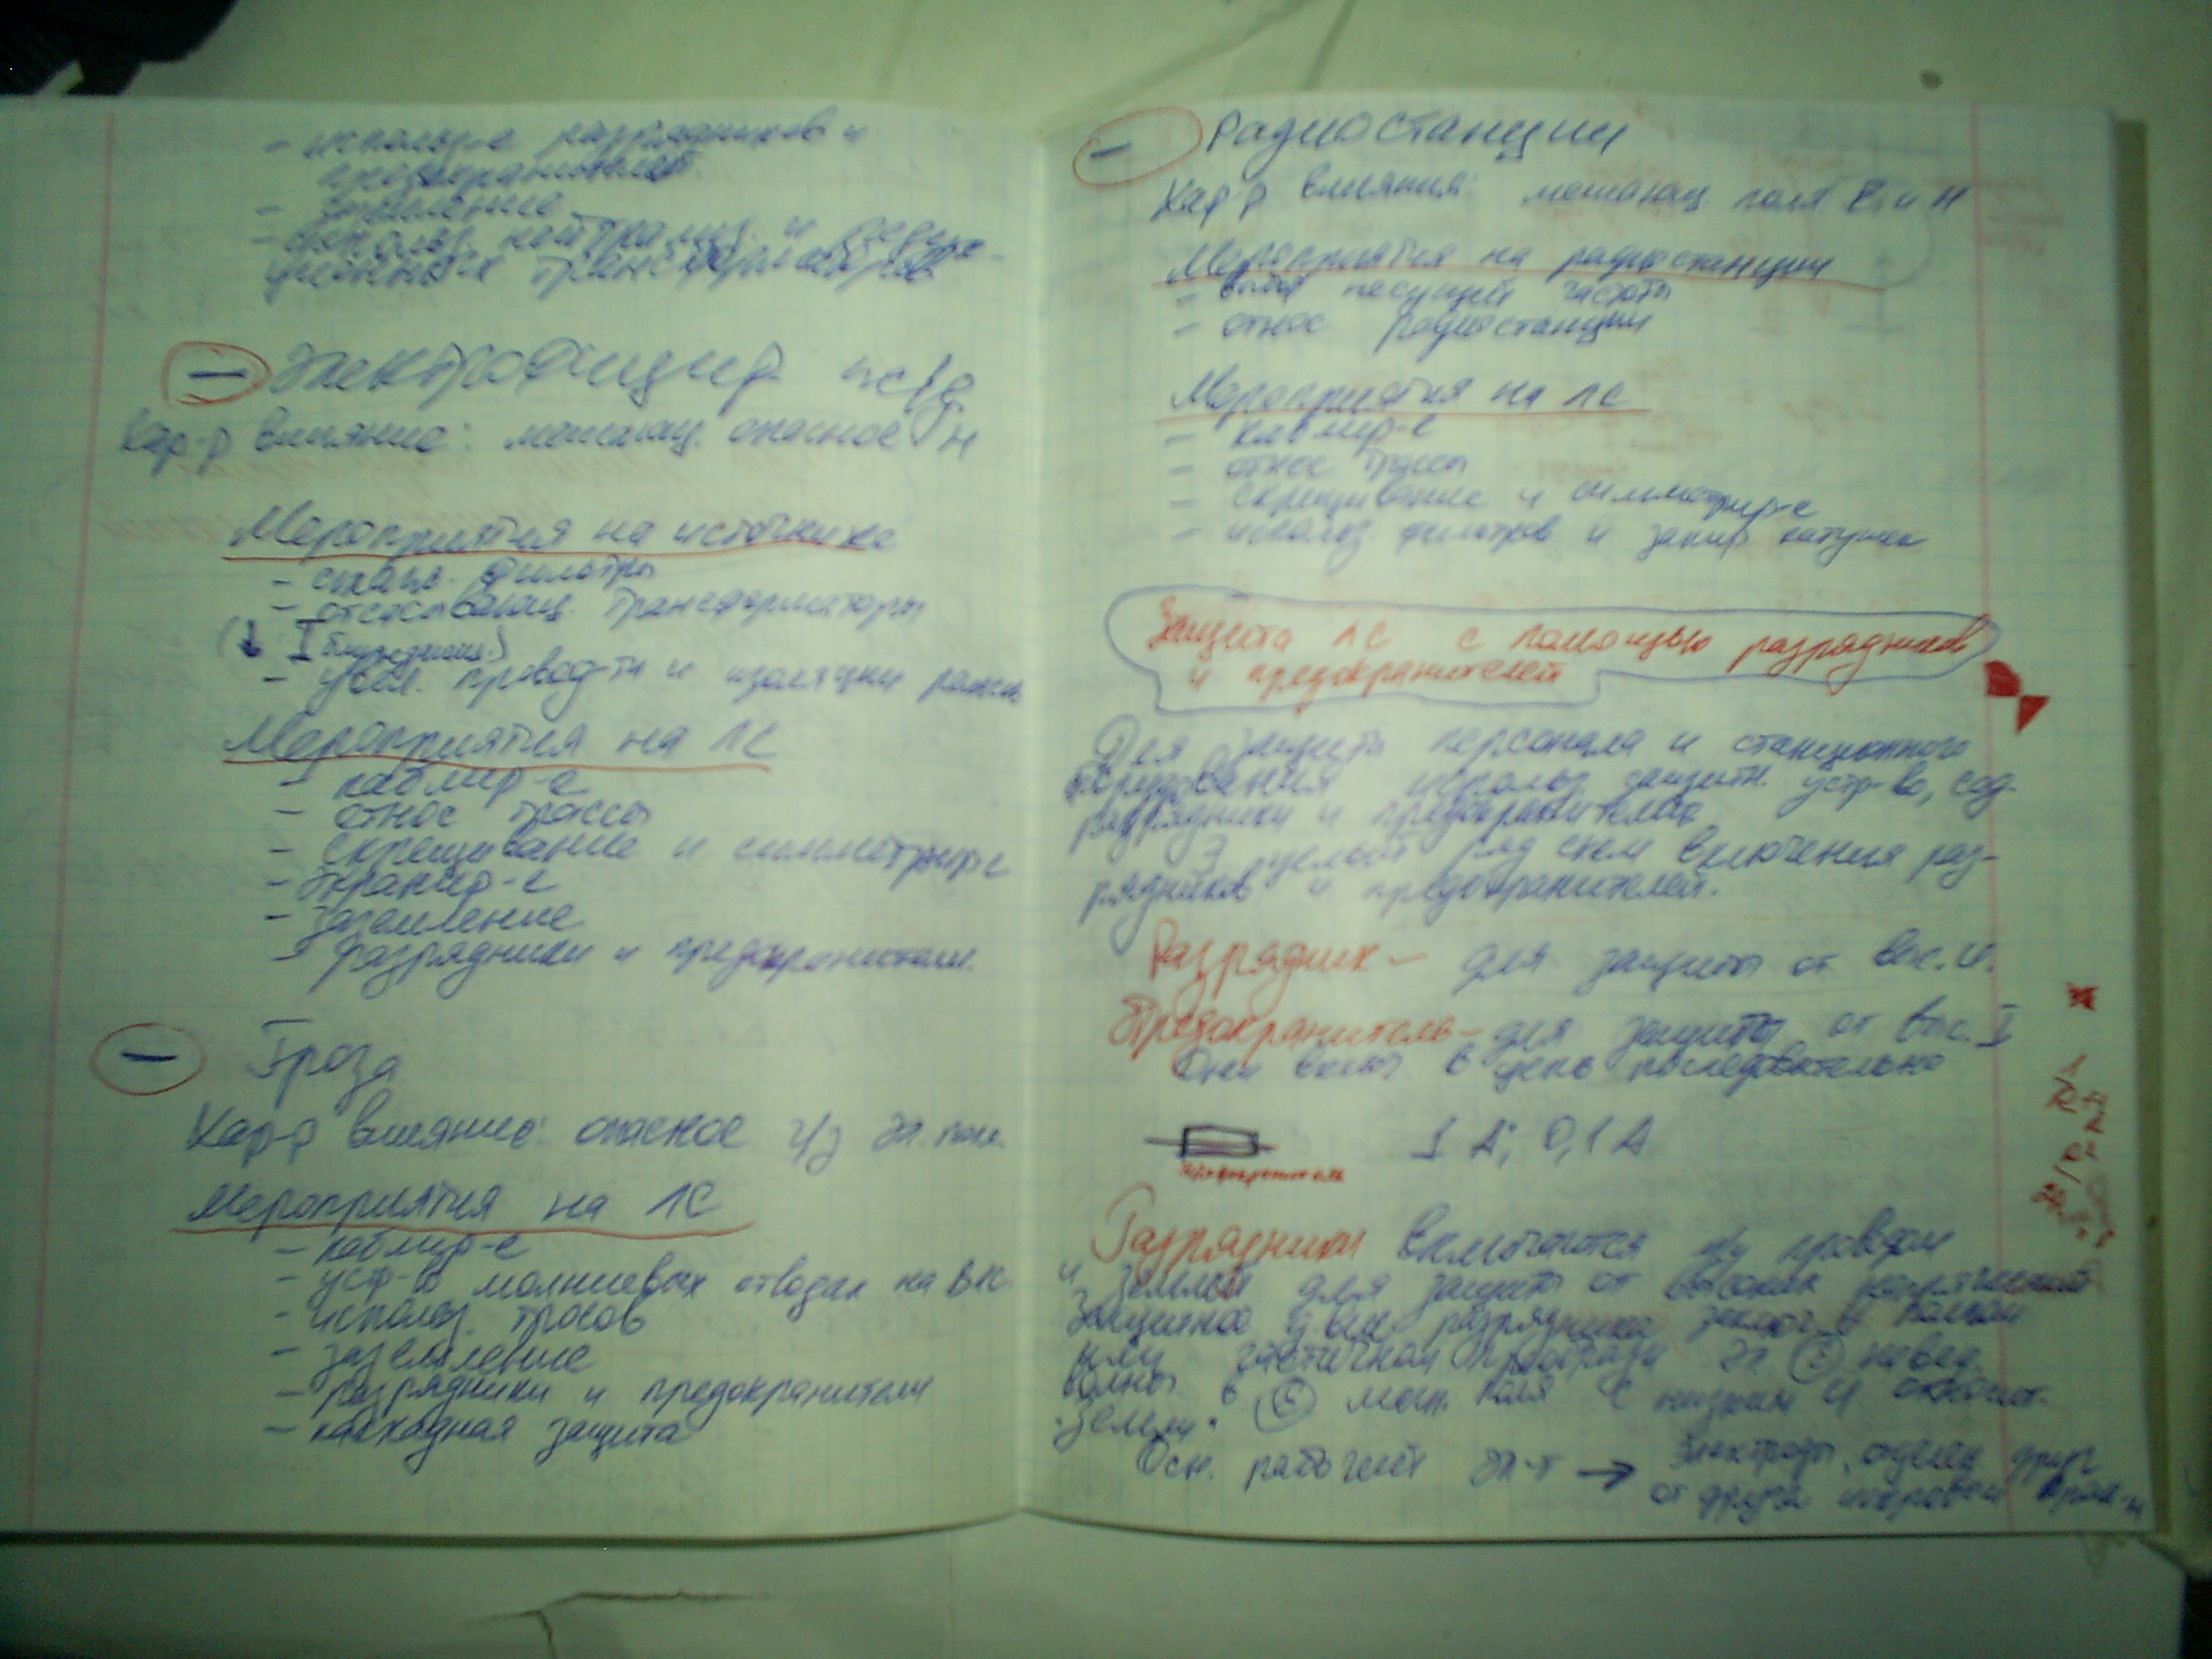 - использ-е разрядников и
предохранителей
- заземление
- использ. нейтрализ. и редук-
ционных трансформаторов
Кар-р влияние: мешающ. опасное H
Мероприятия на источнике
- сглаж. фильтры
- отсасывающ. трансформаторы
(↓ I блуждающ.)
- увел. провод-ти и изоляции рельсов
Мероприятия на ЛС
- каблир-е
- относ трассы
- скрещивание и симметрир-е
- экранир-е
- заземление
- разрядники и предохранители.
- Гроза
Хар-р влияние: опасное ч/з эл. поле.
Мероприятия на ЛС
- каблир-е
- устр-во молниевых отводах на ВЛС.
- использ. тросов
- заземление
- разрядники и предохранители
- каскадная защита
- Радиостанции
Хар-р влияния: мешающ поля E и H
Мероприятия на радиостанции
- выбор несущей частоты
- относ радиостанции
Мероприятия на ЛС
- каблир-е
- относ трассы
- скрещивание и симметрир-е
- использ. фильтров и запир катушек
Защита ЛС с помощью разрядников
и предохранителей
Для защиты персонала и станционного
оборудования использ защитн. устр-во, сод.
разрядники и предохранители
Э целый ряд схем включения раз-
рядников и предохранителей.
Разрядник - для защиты от выс. U.
Предохранитель - для защиты от выс. I
Они включ. в цепь последовательно
1 А; 0,1 А
предохранитель
Разрядники включаются м/у проводом
и землей для защиты от высоких напряжений
Защитное действ разрядника заключ. в полном
или частичном преобразов эл. Ɛ навед.
волны в Ɛ магн. поля с низким U относит.
"земли".
Осн. рабочий эл-т → Электроды, отделен друг
от друга искровым пром-м